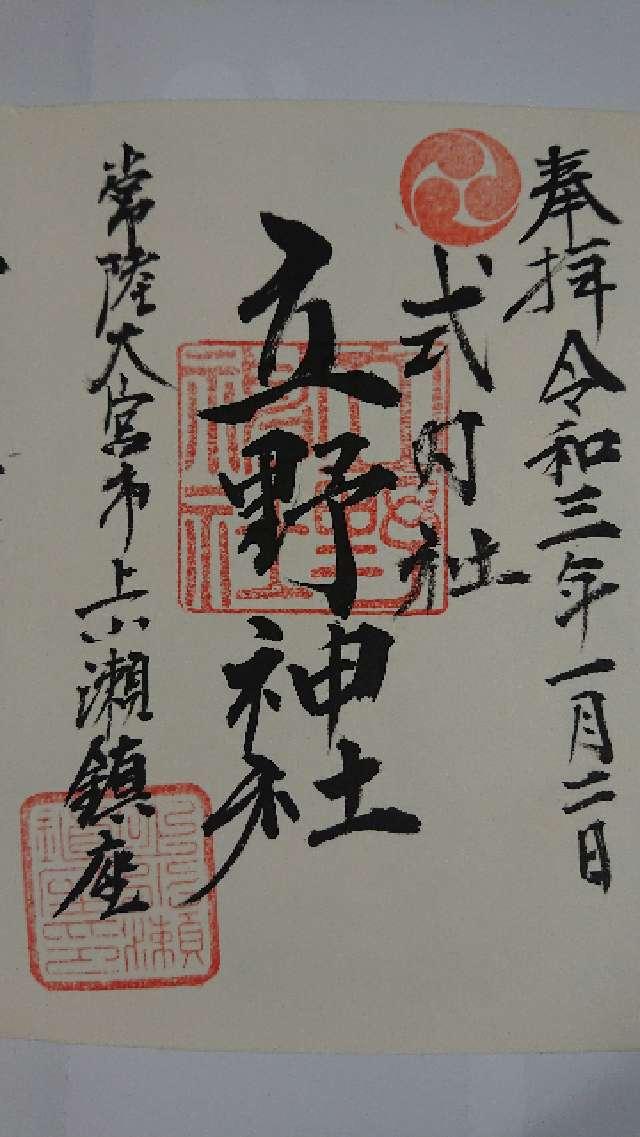 奉拝令和三年一月二日
式内社
立野神社
常陸大宮市上小瀬鎮座
立野神社